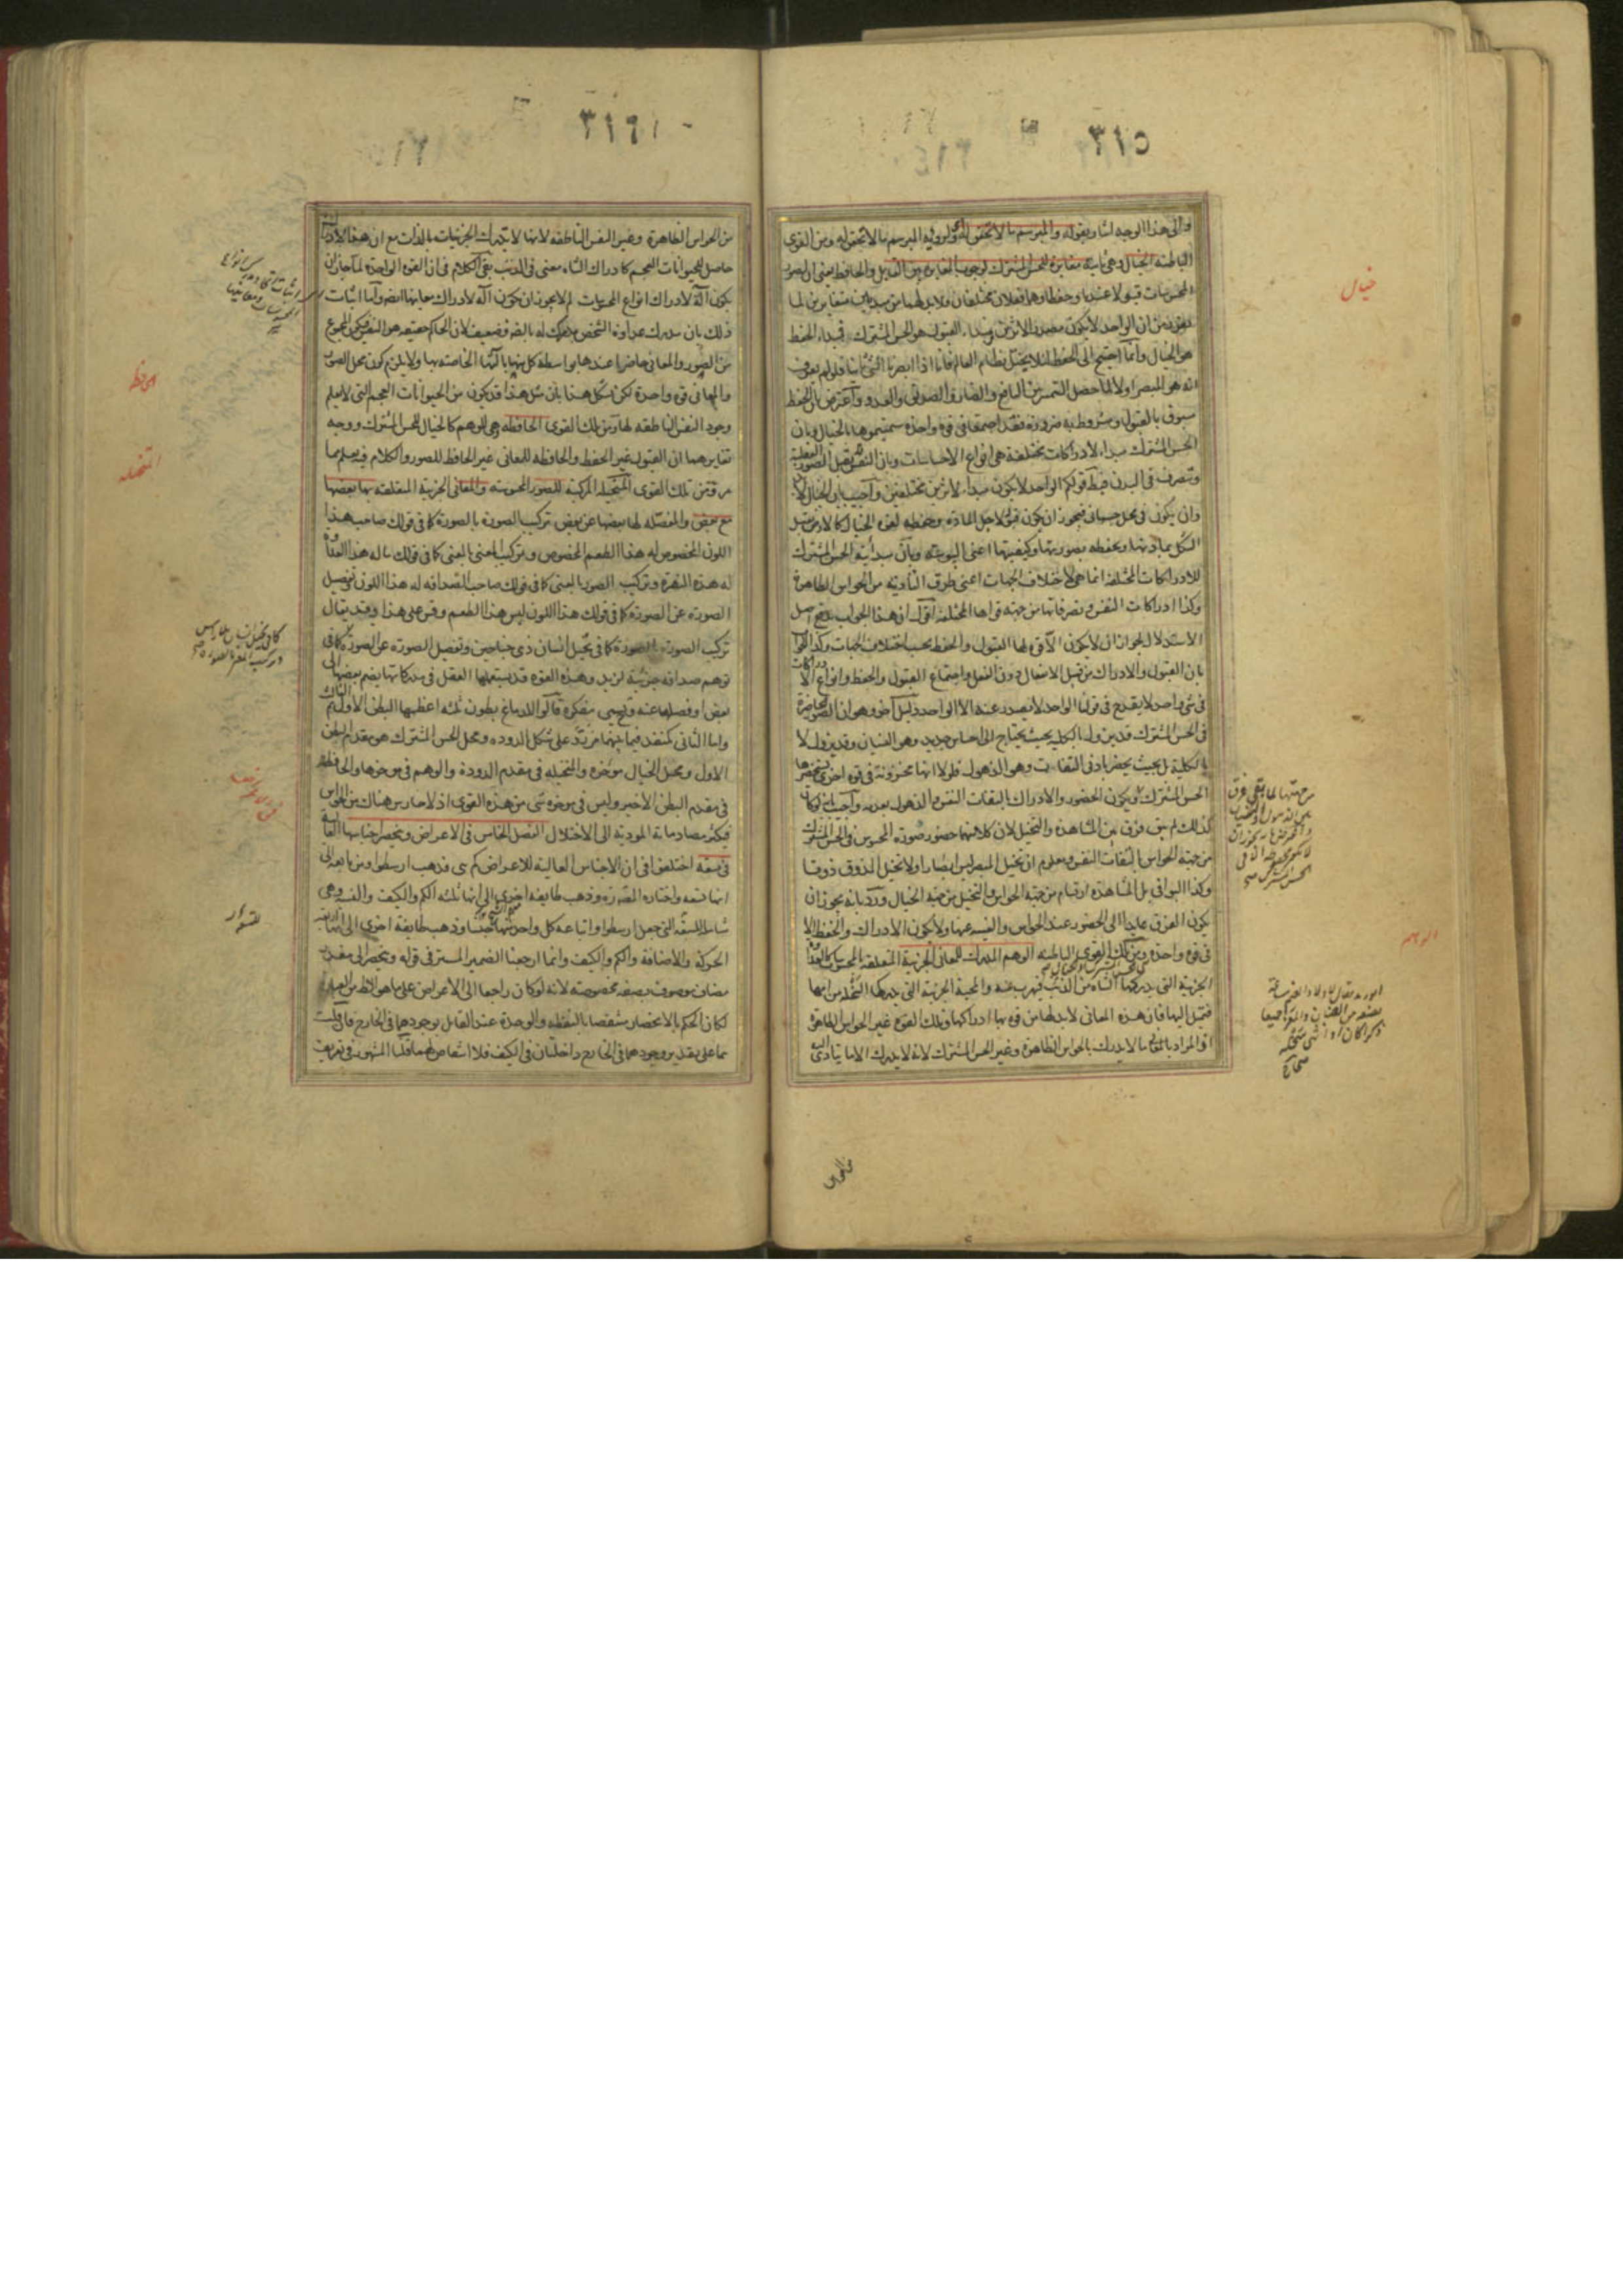 ٣١٥
والى هذا الوجه اشار بقوله والمبرسم ما لا تحقق له ولرؤية المبرسم ما لا تحقق له ومن القوى
الباطنة الخيال وهي ثابتة مغايرة للحس المشترك لوجوب المغايرة بين القابل والحافظ يعني ان لصور
المحسوسات قبولا عندنا وحفظا وهما فعلان مختلفان ولابد لهما من مبدأين متغايرين لما
تقرر من ان الواحد لا يكون مصدر الاثرين فمبداء القبول هو الحس المشترك ومبداء الحفظ
هو الخيال وانما احتيج الى الحفظ لئلا يختل نظام العالم فانا اذا ابصرنا الشئ ثانيا فلو لم نعرف
انه هو المبصر اولا لما حصل التمييز بين النافع والضار والصديق والعدو واعترض بان الحفظ
مسبوق بالقبول ومشروط به ضرورة فقد اجتمعا في قوة واحدة سميتموها بالخيال وبان
الحس المشترك مبداء لادراكات مختلفة هي انواع الاحساسات وبان النفس تقبل الصور العقلية
وتتصرف في البدن فبطل قولكم الواحد لا يكون مبداء لاثرين مختلفين واجيب بان الخيال لابد
وان يكون في محل جسماني فيجوز ان يكون قبوله لاجل المادة وحفظه لقوة الخيال كالارض تقبل
الشكل بمادتها وتحفظه بصورتها وكيفيتها اعني اليبوسة وبان مبدأية الحس المشترك
للادراكات المختلفة انما هي لاختلاف الجهات اعني طرق التأدية من الحواس الظاهرة
وكذا ادراكات النفس وتصرفاتها من جهة قواها المختلفة اقول ان هذا الجواب يدفع اصل
الاستدلال لجواز ان لا يكون الا قوة لها القبول والحفظ بحسب اختلاف الجهات وكذا الجواب
بان القبول والادراك من قبيل الانفعال دون الفعل واجتماع القبول والحفظ وانواع الادراكات
في شئ واحد لا يقدح في قولنا الواحد لا يصدر عنه الا الواحد دليل آخر وهو ان الصور الحاضرة
في الحس المشترك قد يزول بالكلية بحيث يحتاج الى احساس جديد وهو النسيان وقد يزول لا
بالكلية بل بحيث يحضر بادنى التفات وهو الذهول فلولا انها مخزونة في قوة اخرى يستحضرها
الحس المشترك ويكون الحضور والادراك بالتفات النفس والذهول بعدمه واجيب بانه لو كان
كذلك لم يبق فرق بين المشاهدة والتخيل لان كلا منهما حضور صورة المحسوس في الحس المشترك
من جهة الحواس بالتفات النفس ومعلوم ان تخيل المبصر ليس ابصارا ولا تخيل المذوق ذوقا
وكذا البواقي بل المشاهدة ارتسام من جهة الحواس والتخيل من جهة الخيال ورد بانه يجوز ان
يكون الفرق عايدا الى الحضور عند الحواس والغيبة عنها ولا يكون الادراك والحفظ الا
في قوة واحدة ومن تلك القوى الباطنة الوهم المدرك للمعاني الجزئية المتعلقة بالمحسوس كالعداوة
الجزئية التي يدركها الشاة من الذئب فيهرب عنه والمحبة الجزئية التي يدركها السخلة من امها
فتميل اليها فان هذه المعاني لابد لها من قوة بها ادراكها وتلك القوة غير الحواس الظاهرة
اذ المراد بالمعاني ما لا يدرك بالحواس الظاهرة وغير الحس المشترك لانه لا يدرك الا ما يتادى اليه
خيال
الوهم
من الحواس
٣١٦
من الحواس الظاهرة وغير النفس الناطقة لانها لا تدرك الجزئيات بالذات مع ان هذا الادراك
حاصل للحيوانات العجم كادراك الشاة معنى في الذئب بقى الكلام في ان القوة الواحدة لما جاز ان
يكون آلة لادراك انواع المحسوسات لم لا يجوز ان يكون آلة لادراك معانيها ايضا واما اثبات
ذلك بان مدرك عداوة الشخص مدرك له بالضرورة فضعيف لان الحاكم حقيقة هو النفس فيكون المجموع
من الصور والمعاني حاضرا عندها بواسطة كل منهما بآلتها الخاصة بها ولا يلزم كون محل الصور
والمعاني قوة واحدة لكن يشكل هذا بان مثل هذا قد يكون من الحيوانات العجم التي لا يعلم
وجود النفس الناطقة لها ومن تلك القوى الحافظة وهي للوهم كالخيال للحس المشترك ووجه
تغايرهما ان القبول غير الحفظ والحافظة للمعاني غير الحافظ للصور والكلام فيه يعلم مما
مر ومن تلك القوى المتخيلة المركبة للصور المحسوسة والمعاني الجزئية المتعلقة بها بعضها
مع بعض والمفصلة لها بعضها عن بعض تركيب الصورة بالصورة كما في قولك صاحب هذا
اللون المخصوص له هذا الطعم المخصوص وتركيب المعنى بالمعنى كما في قولك ما له هذا العداوة
له هذه النفرة وتركيب الصورة بالمعنى كما في قولك صاحب الصداقة له هذا اللون وتفصيل
الصورة عن الصورة كما في قولك هذا اللون ليس هذا الطعم وقس على هذا وقد يقال
تركيب الصورة بالصورة كما في تخيل انسان ذي جناحين وتفصيل الصورة عن الصورة كما في
توهم صداقة جزئية لزيد وهذه القوة قد يستعملها العقل في مدركاتها بضم بعضها الى
بعض او فصلها عنه وتسمى مفكرة قالوا للدماغ بطون ثلثة اعظمها البطن الاول ثم الثالث
واما الثاني كمنفذ فيما بينهما مزرد على شكل الدودة ومحل الحس المشترك هو مقدم البطن
الاول ومحل الخيال مؤخره والمتخيلة في مقدم الدودة والوهم في مؤخرها والحافظة
في مقدم البطن الاخير وليس في مؤخره شئ من هذه القوى اذ لا حارس هناك من الحواس
فيكثر مصادماته المودية الى الاختلال الفصل الخامس في الاعراض وينحصر اجناسها العالية
في تسعة اختلفوا في ان الاجناس العالية للاعراض كم هي فذهب ارسطو ومن تابعه الى
انها تسعة واختاره المصنف وذهب طايفة اخرى الى انها ثلثة الكم والكيف والنسبة وهي
شاملة للسبعة التي جعل ارسطو واتباعه كل واحد منها جنسا وذهب طايفة اخرى الى انها اربعة
الحركة والاضافة والكم والكيف وانما ارجعنا الضمير المستتر في قوله وينحصر الى مقدر
مضاف موصوف بصفة مخصوصة لانه لو كان راجعا الى الاعراض على ما هو الظاهر من العبارة
لكان الحكم بالانحصار منتقضا بالنقطة والوحدة عند القايل بوجودهما في الخارج فان قلت
هما على تقدير وجودهما في الخارج داخلتان في الكيف فلا انتقاض بهما قلنا المشهور في تعريف
الحافظ
المتخيلة